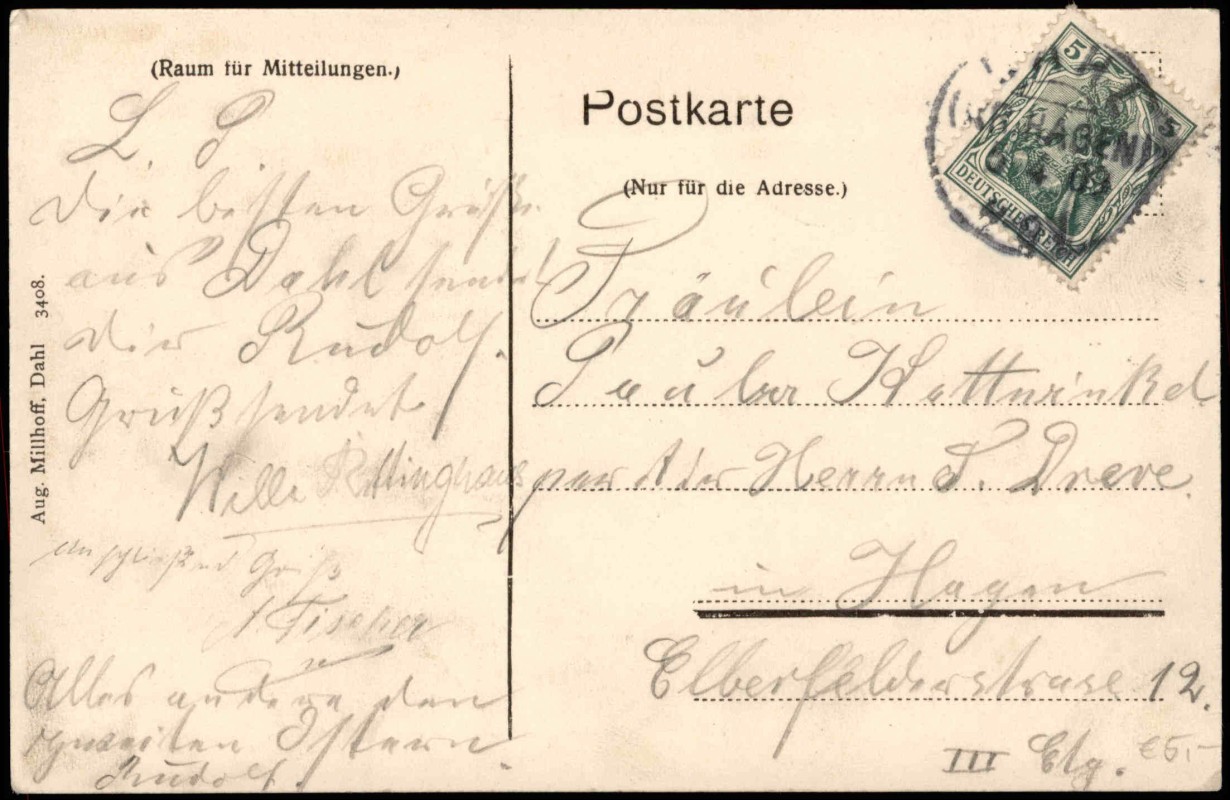 (Raum für Mitteilungen.)
L. P.
Die besten Grüße
aus Dahl sendet
Dir Rudolf.
Gruß sendet
Willi
Gruß
A. Fischer
Alles andere den
zweiten Ostern
Rudolf.
Aug. Millhoff, Dahl 3408.
Postkarte
(Nur für die Adresse.)
5 5
DEUTSCHES REICH
HAGEN
4 09
Fräulein
Paula
per Adr Herrn S. Dreve
in Hagen
Elberfelderstrase 12.
III Etg.
€5,-